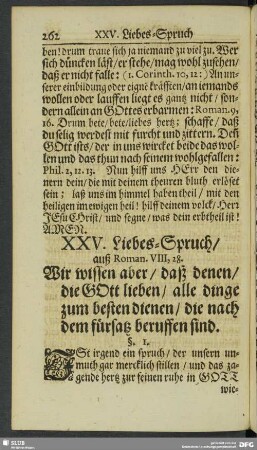 262 XXV. Liebes-Spruch
ben! drum traue sich ja niemand zu viel zu. Wer
sich düncken läst/ er stehe/ mag wohl zusehen/
daß er nicht falle: (1. Corinth. 10, 12: ) An un-
serer einbildung oder eigne kräfften/ an iemands
wollen oder lauffen liegt es gantz nicht/ son-
dern allein an GOttes erbarmen: Roman. 9,
16. Drum bete/bete/liebes hertz: schaffe/ daß
du selig werdest mit furcht und zittern. Deñ
GOtt ists/ der in uns wircket beide das wol-
len und das thun nach seinem wohlgefallen:
Phil. 2, 12. 13. Nun hilff uns HErr den die-
nern dein/ die mit deinem theuren bluth erlöset
sein; laß uns im himmel haben theil/ mit den
heiligen im ewigen heil! hilff deinem volck/ Herr
JESu CHrist/ und segne/ was dein erbtheil ist!
AMEN.
XXV. Liebes-Spruch/
auß Roman. VIII, 28.
Wir wissen aber/ daß denen/
die GOtt lieben/ alle dinge
zum besten dienen/ die nach
dem fürsatz beruffen sind.
§. 1.
ISt irgend ein spruch/ der unsern un-
muth gar mercklich stillen/ und das za-
gende hertz zur feinen ruhe in GOTT
wie-
SLUB
DFG